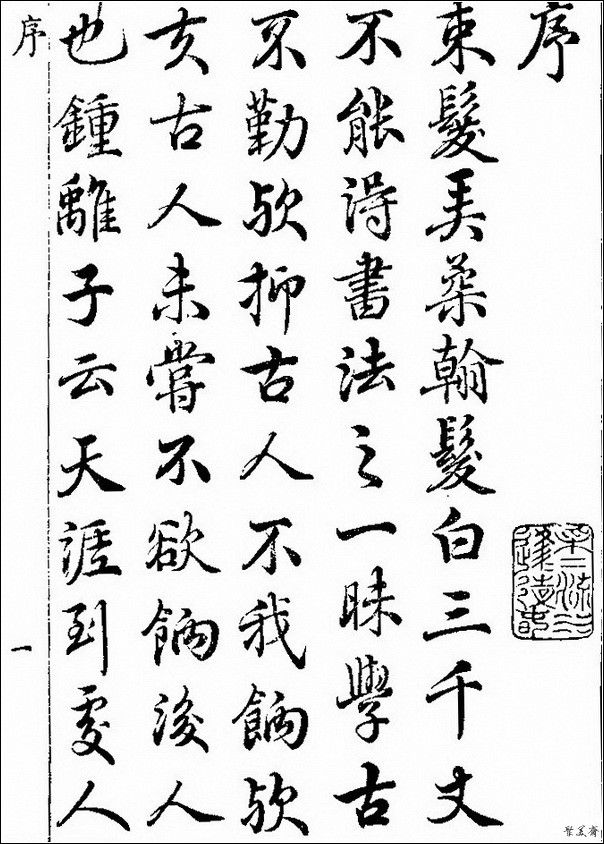 序
束髮弄柔翰髮白三千丈
不能得書法之一昧學古
不勤歟抑古人不我餉歟
亥古人未嘗不欲餉後人
也鍾離子云天涯到處人
序
一